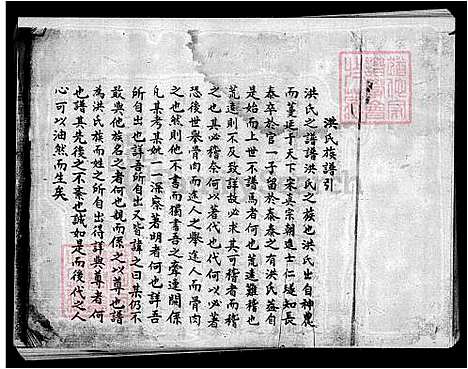 洪氏族譜引
洪氏之譜譜洪氏之族也洪氏出自神農
而蔓延于天下宋真宗朝進士仁璲知長
泰卒於官一子留於泰泰之有洪氏益自
是始而二世不譜焉者何也荒遠難稽也
荒遠則不及致詳故必求其可稽者而稽
之也其必稽奈何以著代也代何以必著
恐後世譽骨肉而進人之譽進人而骨肉
之也然則他人不書而獨書吾之
凡某考某妣一一深察著明者何也詳吾
所自出也詳吾所自出又皆諱之曰某仍不
敢與他族名之者何也親而係之以尊也譜
為洪氏族而姓之所自出得詳與尊者何
也譜其先後之不紊也誠如是而後代之人
心可以油然而生矣